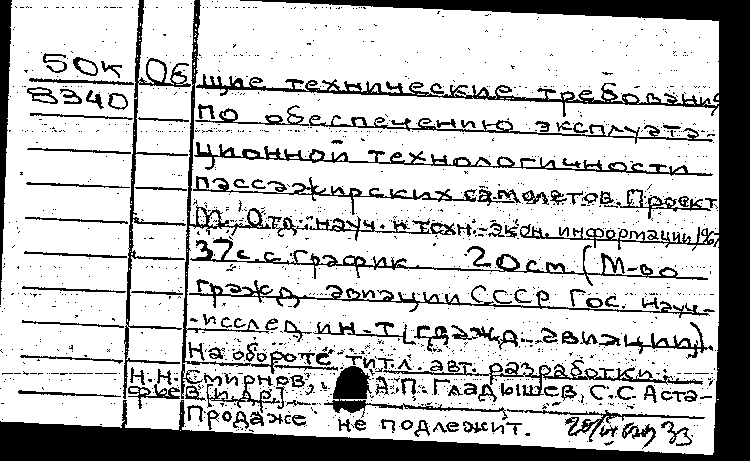 50К Общие технические требования
8340 по обеспечению эксплуата-
ционной технологичности
пассажирских самолетов. Проект
М., Отд. науч. и техн.-экон. информации,
37с. с график. 20cm (М-во
гражд. авиации СССР Гос. науч.-
-исслед ин-т гражд. авиации).
На обороте тит.л. авт. разработки:
Н.Н. Смирнов, А.П. Гладышев, С.С. Аста-
фьев [и др.]
Продаже не подлежит.